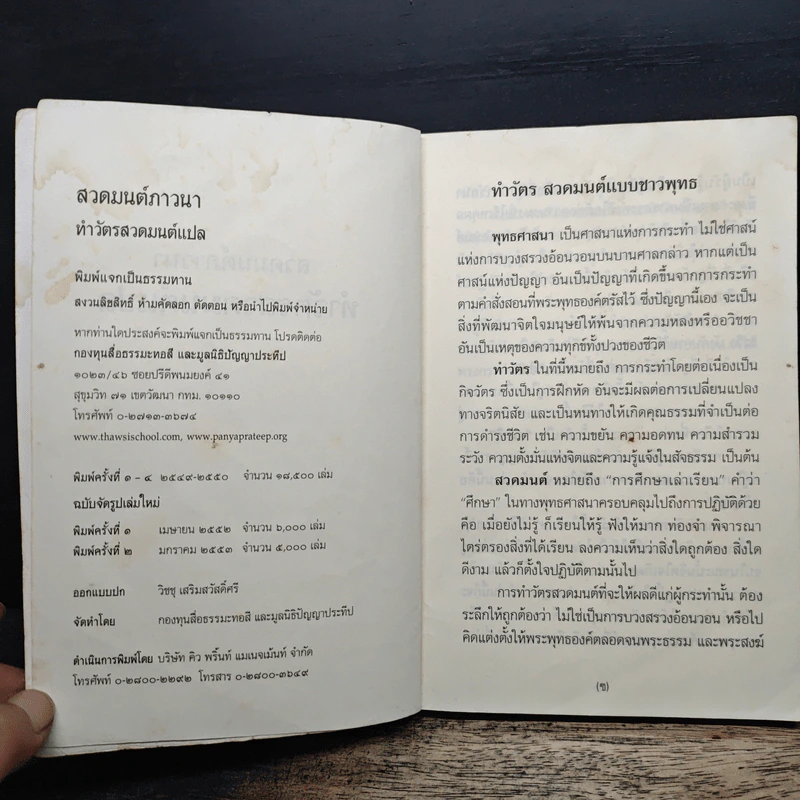 สวดมนต์ภาวนา
ทำวัตรสวดมนต์แปล
พิมพ์แจกเป็นธรรมทาน
สงวนลิขสิทธิ์ ห้ามคัดลอก ตัดตอน หรือนำไปพิมพ์จำหน่าย
หากท่านใดประสงค์จะพิมพ์แจกเป็นธรรมทาน โปรดติดต่อ
กองทุนสื่อธรรมะทอสี และมูลนิธิปัญญาประทีป
๑๐๒๓/๔๖ ซอยปรีดีพนมยงค์ ๔๑
สุขุมวิท ๗๑ เขตวัฒนา กทม. ๑๐๑๑๐
โทรศัพท์ ๐-๒๗๑๓-๓๖๗๔
www.thawsischool.com, www.panyaprateep.org
พิมพ์ครั้งที่ ๑ - ๔ ๒๕๔๙-๒๕๕๐ จำนวน ๑๘,๕๐๐ เล่ม
ฉบับจัดรูปเล่มใหม่
พิมพ์ครั้งที่ ๑ เมษายน ๒๕๕๒ จำนวน ๖,๐๐๐ เล่ม
พิมพ์ครั้งที่ ๒ มกราคม ๒๕๕๓ จำนวน ๕,๐๐๐ เล่ม
ออกแบบปก วิชชุ เสริมสวัสดิ์ศรี
จัดทำโดย กองทุนสื่อธรรมะทอสี และมูลนิธิปัญญาประทีป
ดำเนินการพิมพ์โดย บริษัท คิว พริ้นท์ แมเนจเม้นท์ จำกัด
โทรศัพท์ ๐-๒๘๐๐-๒๒๙๒ โทรสาร ๐-๒๘๐๐-๓๖๔๙
ทำวัตร สวดมนต์แบบชาวพุทธ
พุทธศาสนา เป็นศาสนาแห่งการกระทำ ไม่ใช่ศาสน์
แห่งการบวงสรวงอ้อนวอนบนบานศาลกล่าว หากแต่เป็น
ศาสน์แห่งปัญญา อันเป็นปัญญาที่เกิดขึ้นจากการกระทำ
ตามคำสั่งสอนที่พระพุทธองค์ตรัสไว้ ซึ่งปัญญานี้เอง จะเป็น
สิ่งที่พัฒนาจิตใจมนุษย์ให้พ้นจากความหลงหรืออวิชชา
อันเป็นเหตุของความทุกข์ทั้งปวงของชีวิต
ทำวัตร ในที่นี้หมายถึง การกระทำโดยต่อเนื่องเป็น
กิจวัตร ซึ่งเป็นการฝึกหัด อันจะมีผลต่อการเปลี่ยนแปลง
ทางจริตนิสัย และเป็นหนทางให้เกิดคุณธรรมที่จำเป็นต่อ
การดำรงชีวิต เช่น ความขยัน ความอดทน ความสำรวม
ระวัง ความตั้งมั่นแห่งจิตและความรู้แจ้งในสัจธรรม เป็นต้น
สวดมนต์ หมายถึง “การศึกษาเล่าเรียน” คำว่า
“ศึกษา” ในทางพุทธศาสนาครอบคลุมไปถึงการปฏิบัติด้วย
คือ เมื่อยังไม่รู้ ก็เรียนให้รู้ ฟังให้มาก ท่องจำ พิจารณา
ไตร่ตรองสิ่งที่ได้เรียน ลงความเห็นว่าสิ่งใดถูกต้อง สิ่งใด
ดีงาม แล้วก็ตั้งใจปฏิบัติตามนั้นไป
การทำวัตรสวดมนต์ที่จะให้ผลดีแก่ผู้กระทำนั้น ต้อง
ระลึกให้ถูกต้องว่า ไม่ใช่เป็นการบวงสรวงอ้อนวอน หรือไป
คิดแต่งตั้งให้พระพุทธองค์ตลอดจนพระธรรม และพระสงฆ์
(ข)